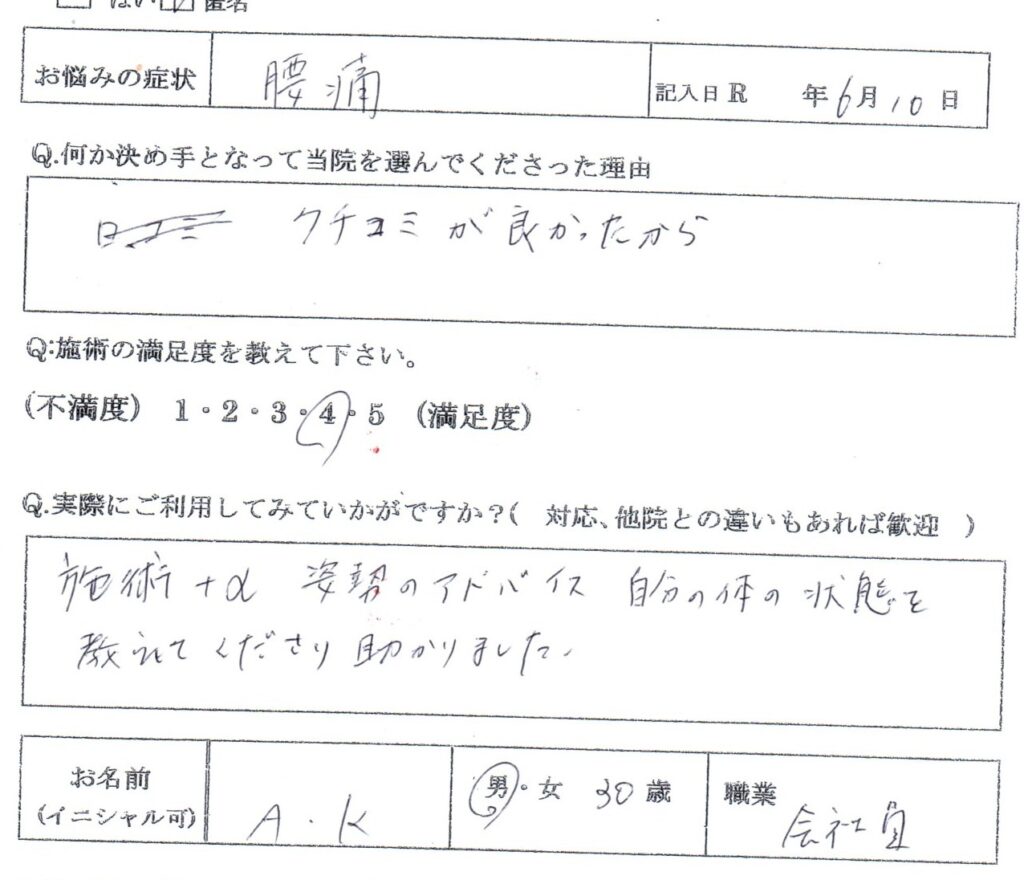 はい 匿名
お悩みの症状 腰痛 記入日 R 年 6月 10日
Q.何か決め手となって当院を選んでくださった理由
クチコミが良かったから
Q:施術の満足度を教えて下さい。
(不満度) 1・2・3・4・5 (満足度)
Q.実際にご利用してみていかがですか?( 対応、他院との違いもあれば歓迎 )
施術+α 姿勢のアドバイス 自分の体の状態を
教えてくださり助かりました。
お名前
(イニシャル可)
A.K
男・女 30歳
職業
会社員